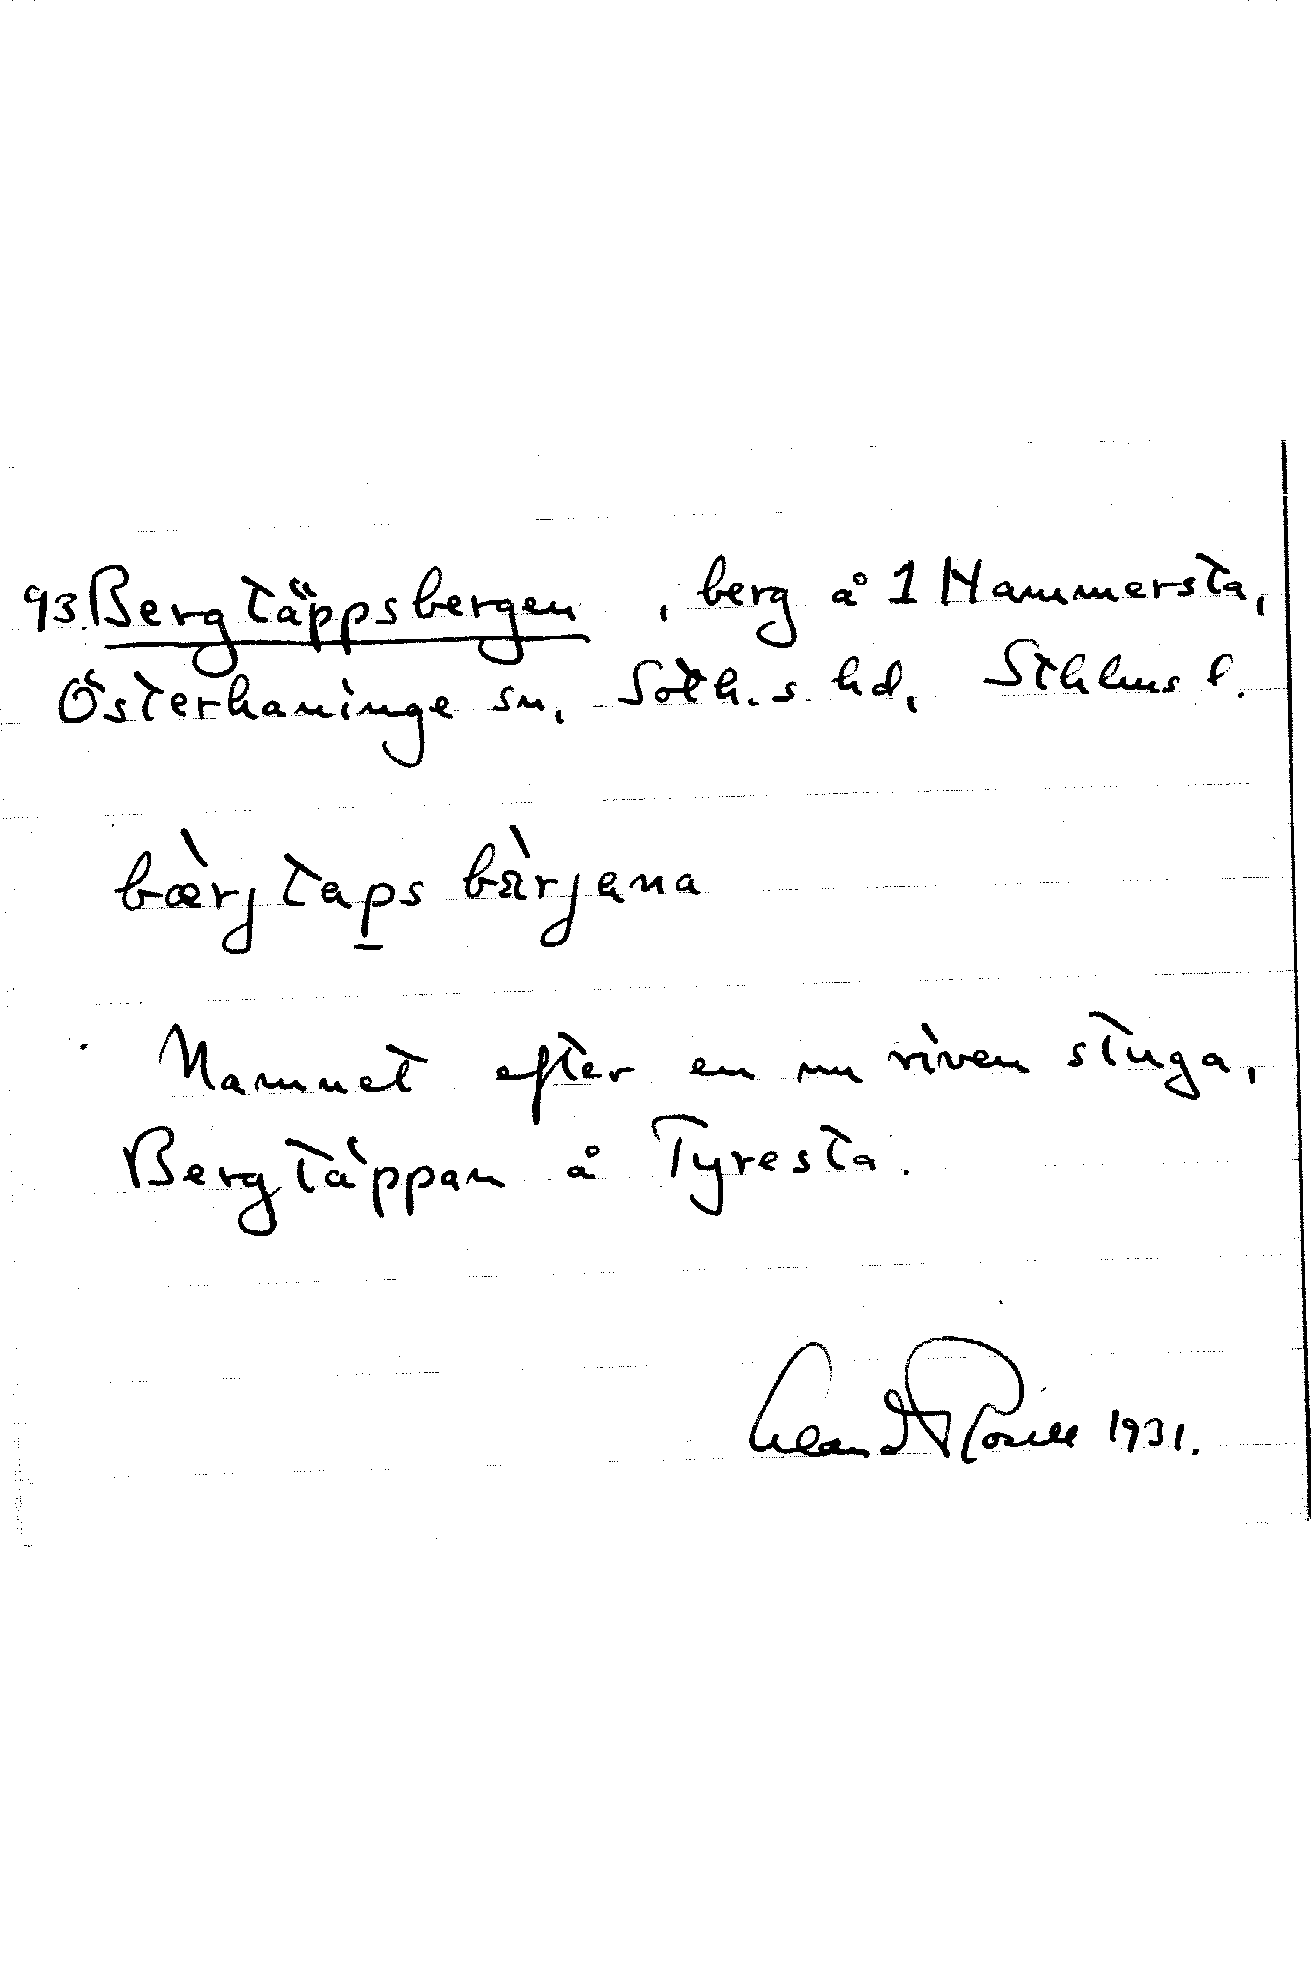 93. Bergtäppsbergen, berg å 1 Hammersta,
Österhaninge sn, Soth.s hd, Sthlms l.
bæ̀rjtaps bæ̀rjena
Namnet efter en nu riven stuga,
Bergtäppan å Tyresta.
1931.